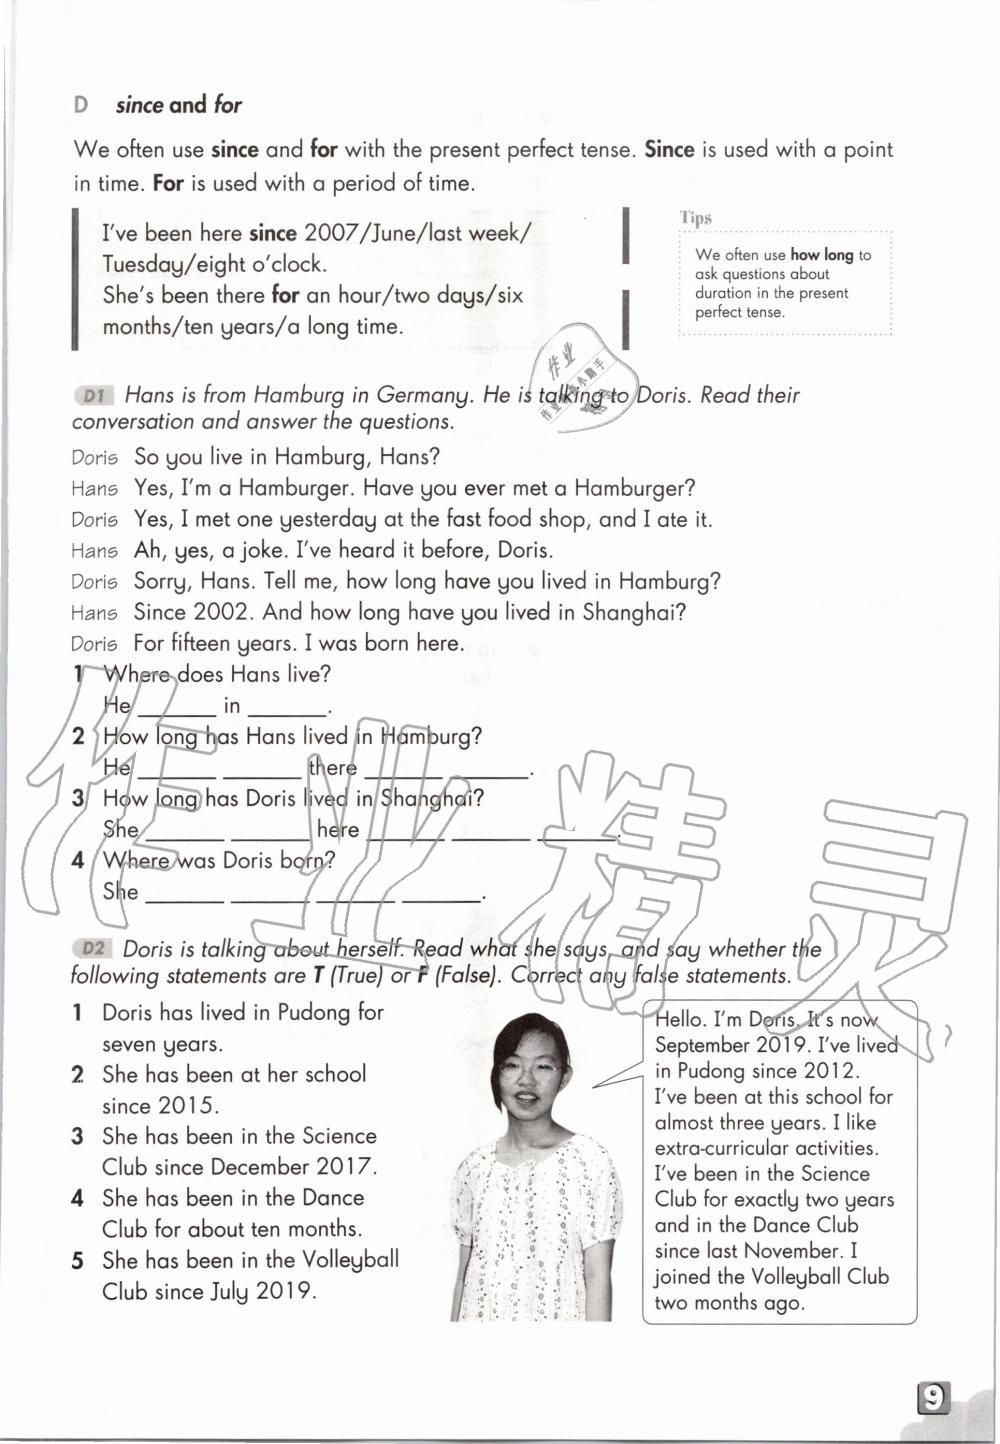 D since and for
We often use since and for with the present perfect tense. Since is used with a point
in time. For is used with a period of time.
I've been here since 2007/June/last week/
Tuesday/eight o'clock.
She's been there for an hour/two days/six
months/ten years/a long time.
Tips
We often use how long to
ask questions about
duration in the present
perfect tense.
作业
小助手
作业
D1 Hans is from Hamburg in Germany. He is talking to Doris. Read their
conversation and answer the questions.
Doris So you live in Hamburg, Hans?
Hans Yes, I'm a Hamburger. Have you ever met a Hamburger?
Doris Yes, I met one yesterday at the fast food shop, and I ate it.
Hans Ah, yes, a joke. I've heard it before, Doris.
Doris Sorry, Hans. Tell me, how long have you lived in Hamburg?
Hans Since 2002. And how long have you lived in Shanghai?
Doris For fifteen years. I was born here.
1 Where does Hans live?
He ______ in ______.
2 How long has Hans lived in Hamburg?
He ______ ______ there ______ ______.
3 How long has Doris lived in Shanghai?
She ______ ______ here ______ ______ ______.
4 Where was Doris born?
She ______ ______ ______ ______.
作业精灵
D2 Doris is talking about herself. Read what she says, and say whether the
following statements are T (True) or F (False). Correct any false statements.
1 Doris has lived in Pudong for
seven years.
2 She has been at her school
since 2015.
3 She has been in the Science
Club since December 2017.
4 She has been in the Dance
Club for about ten months.
5 She has been in the Volleyball
Club since July 2019.
Hello. I'm Doris. It's now
September 2019. I've lived
in Pudong since 2012.
I've been at this school for
almost three years. I like
extra-curricular activities.
I've been in the Science
Club for exactly two years
and in the Dance Club
since last November. I
joined the Volleyball Club
two months ago.
9